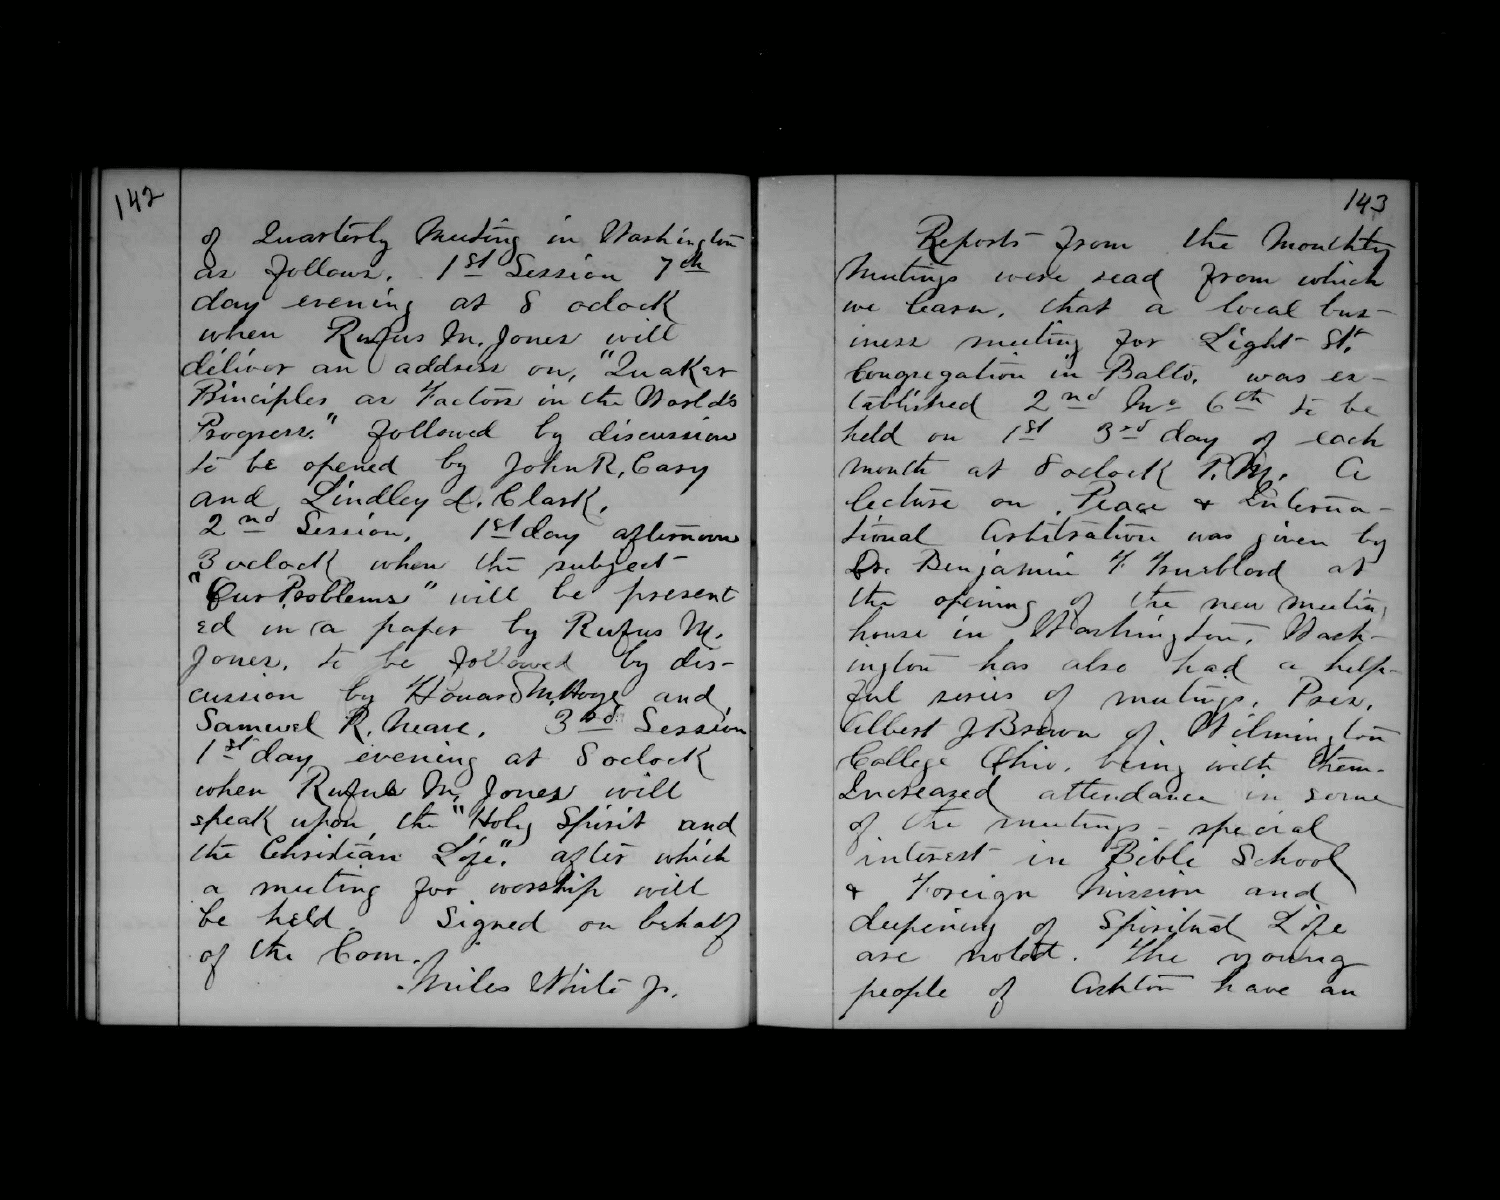 142
of Quarterly Meeting in Washington
as follows. 1st Session 7th
day evening at 8 oclock
when Rufus M. Jones will
deliver an address on, "Quaker
Principles as Factors in the World's
Progress." followed by discussion
to be opened by John R. Cary
and Lindley D. Clark.
2nd Session, 1st day afternoon
3 oclock when the subject
"Our Problems" will be present
ed in a paper by Rufus M.
Jones, to be followed by dis-
cussion by Howard M. Hoge and
Samuel R. Neave. 3rd Session
1st day evening at 8 oclock
when Rufus M. Jones will
speak upon the "Holy Spirit and
the Christian Life", after which
a meeting for worship will
be held. Signed on behalf
of the Com.
Miles White Jr.
143
Reports from the Monthly
Meetings were read from which
we learn, that a local bus-
iness meeting for Light St.
Congregation in Balto. was es-
tablished 2nd Mo 6th to be
held on 1st 3rd day of each
month at 8 oclock P.M. A
lecture on Peace & Interna-
tional Arbitration was given by
Dr. Benjamin F Trueblood at
the opening of the new meeting
house in Washington. Wash-
ington has also had a help-
ful series of meetings, Pres.
Albert J Brown of Wilmington
College Ohio, being with them.
Increased attendance in some
of the meetings - special
interest in Bible School
& Foreign Mission and
deepening of Spiritual Life
are noted. The young
people of Ashton have an